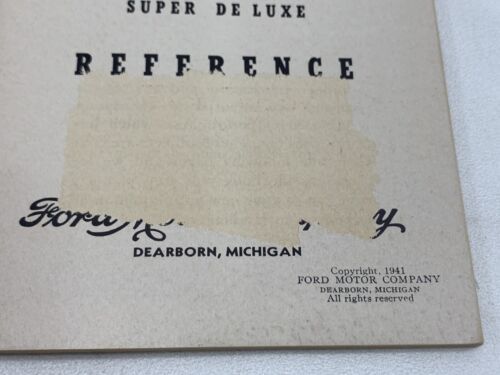 SUPER DE LUXE
REFERENCE
Ford
DEARBORN, MICHIGAN
Copyright, 1941
FORD MOTOR COMPANY
DEARBORN, MICHIGAN
All rights reserved